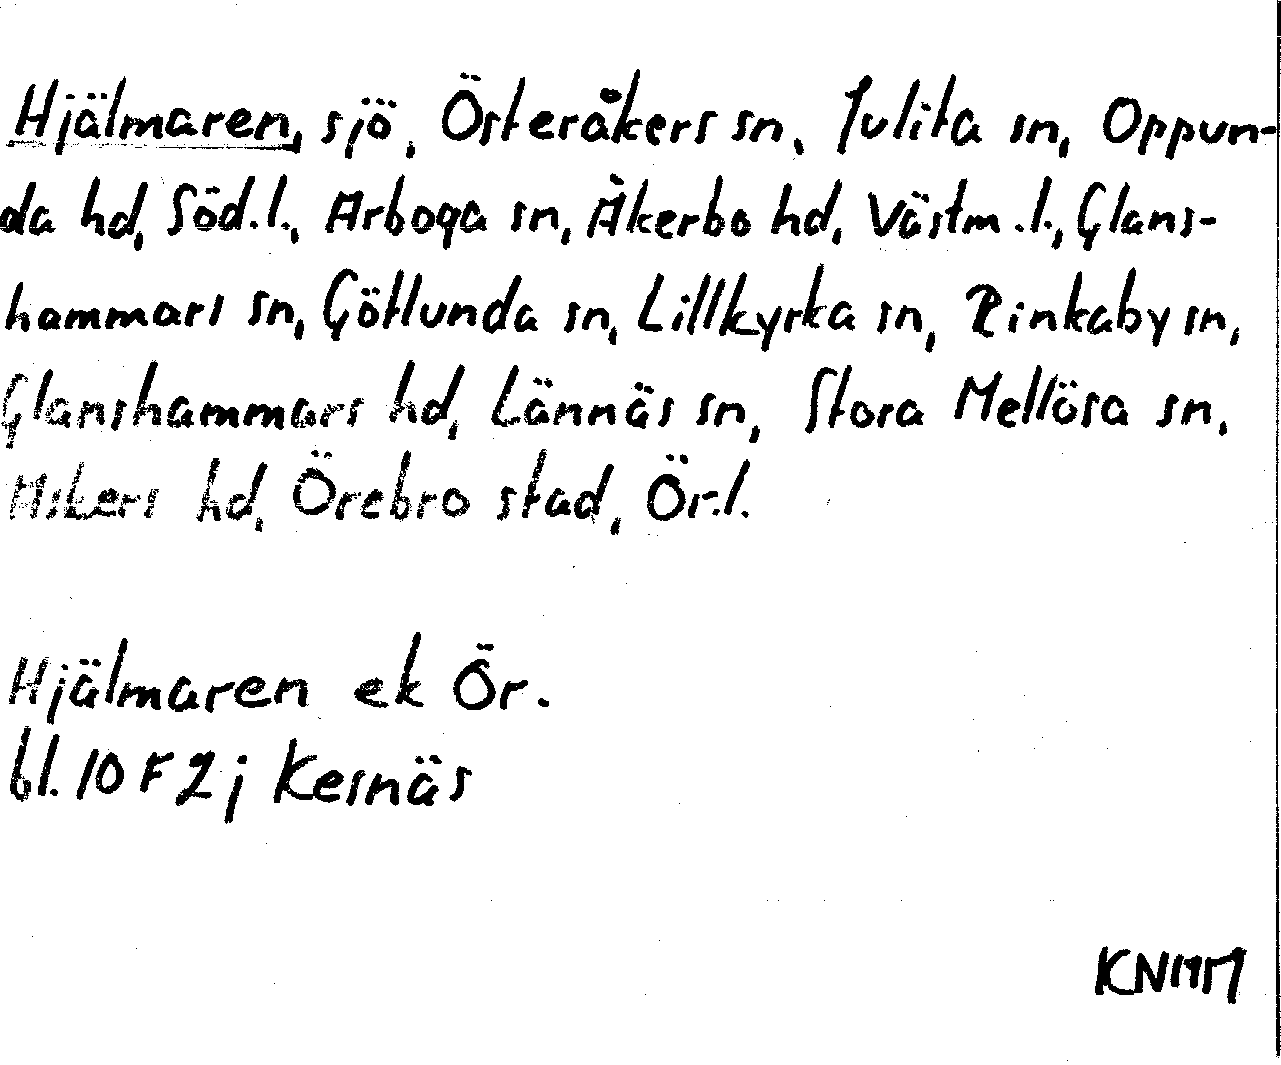 Hjälmaren, sjö, Österåkers sn, Julita sn, Oppun-
da hd, Söd.l., Arboga sn, Åkerbo hd, Västm.l., Glans-
hammars sn, Götlunda sn, Lillkyrka sn, Rinkaby sn,
Glanshammars hd, Lännäs sn, Stora Mellösa sn,
Askers hd, Örebro stad, Ör.l.
Hjälmaren ek Ör.
bl. 10 F 2 j Kesnäs